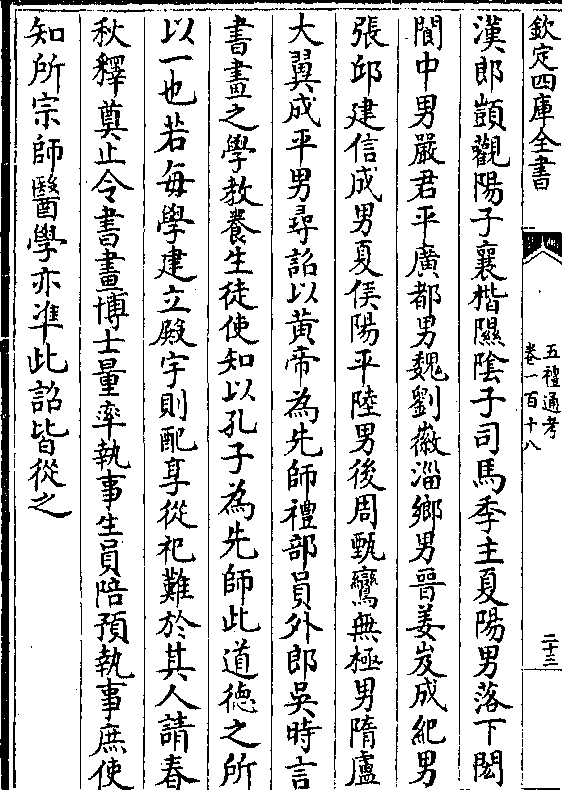 欽定四庫全書
五禮通考
卷一百十八
二十三
漢郎顗觀陽子襄楷隰陰子司馬季主夏陽男落下閎
閬中男嚴君平廣都男魏劉徽淄鄉男晉姜岌成紀男
張邱建信成男夏侯陽平陸男後周甄鸞無極男隋盧
大翼成平男尋詔以黃帝為先師禮部員外郎吳時言
書畫之學教養生徒使知以孔子為先師此道德之所
以一也若每學建立殿宇則配享從祀難於其人請春
秋釋奠止令書畫博士量率執事生員陪預執事庶使
知所宗師醫學亦準此詔皆從之